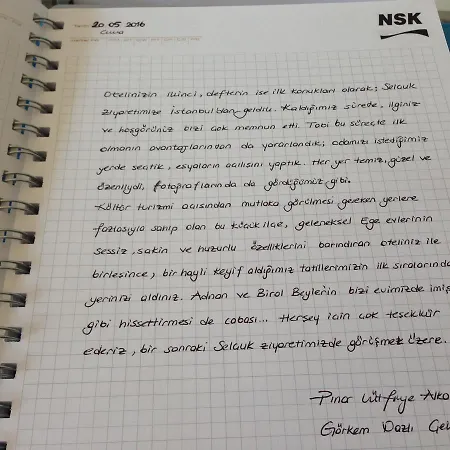 NSK
20.05.2016
Cuma
Otelinizin ikinci, defterin ise ilk konukları olarak; Selçuk
ziyaretimize İstanbul'dan geldik. Kaldığımız sürede, ilginiz
ve hoşgörünüz bizi çok memnun etti. Tabi bu süreçte ilk
olmanın avantajlarından da yararlandık; odamızı istediğimiz
yerde seçtik, eşyaların açılışını yaptık. Her yer temiz, güzel ve
özenliydi, fotoğraflarında da gördüğümüz gibi.
Kültür turizmi açısından mutlaka görülmesi gereken yerlere
fazlasıyla sahip olan bu küçük ilçe, geleneksel Ege evlerinin
sessiz, sakin ve huzurlu özelliklerini barındıran oteliniz ile
birleşince, bir hayli keyif aldığımız tatillerimizin ilk sıralarında
yerinizi aldınız. Adnan ve Birol Beylerin bizi evimizde imiş
gibi hissettirmesi de cabası... Herşey için çok teşekkür
ederiz, bir sonraki Selçuk ziyaretimizde görüşmek üzere.
Pınar Lütfiye
Görkem